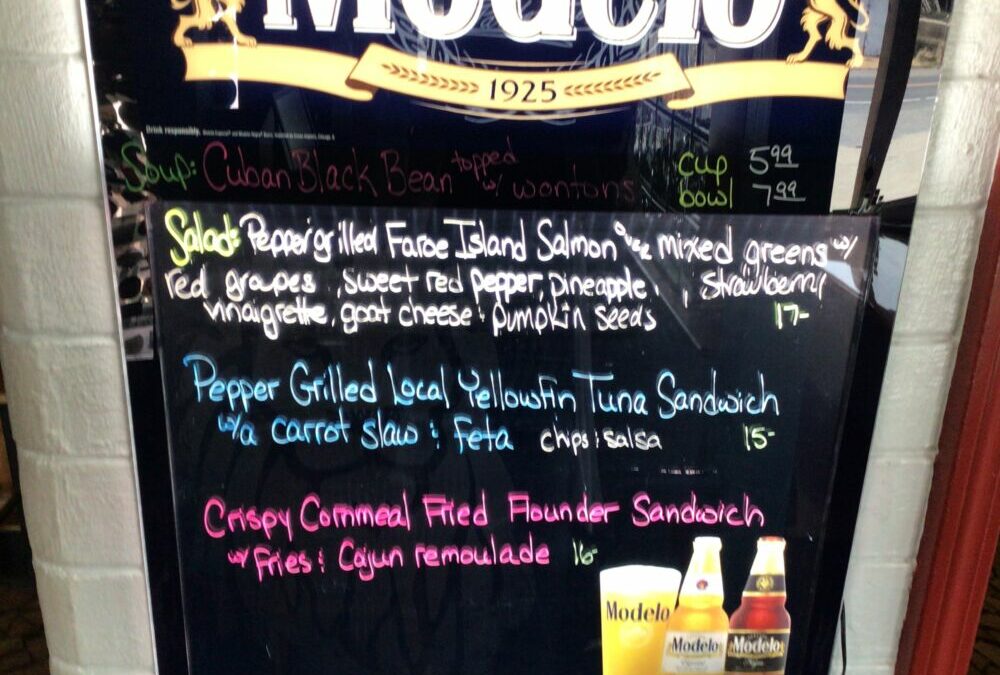 Modelo
1925
Drink responsibly.
Soup: Cuban Black Bean topped w/ wontons cup 5.99
bowl 7.99
Salad: Pepper grilled Faroe Island Salmon over mixed greens w/
red grapes, sweet red pepper, pineapple, strawberry
vinaigrette, goat cheese & pumpkin seeds 17-
Pepper Grilled Local Yellowfin Tuna Sandwich
w/a carrot slaw & feta chips & salsa 15-
Crispy Cornmeal Fried Flounder Sandwich
w/ Fries & Cajun remoulade 16-
Modelo
Modelo
Modelo